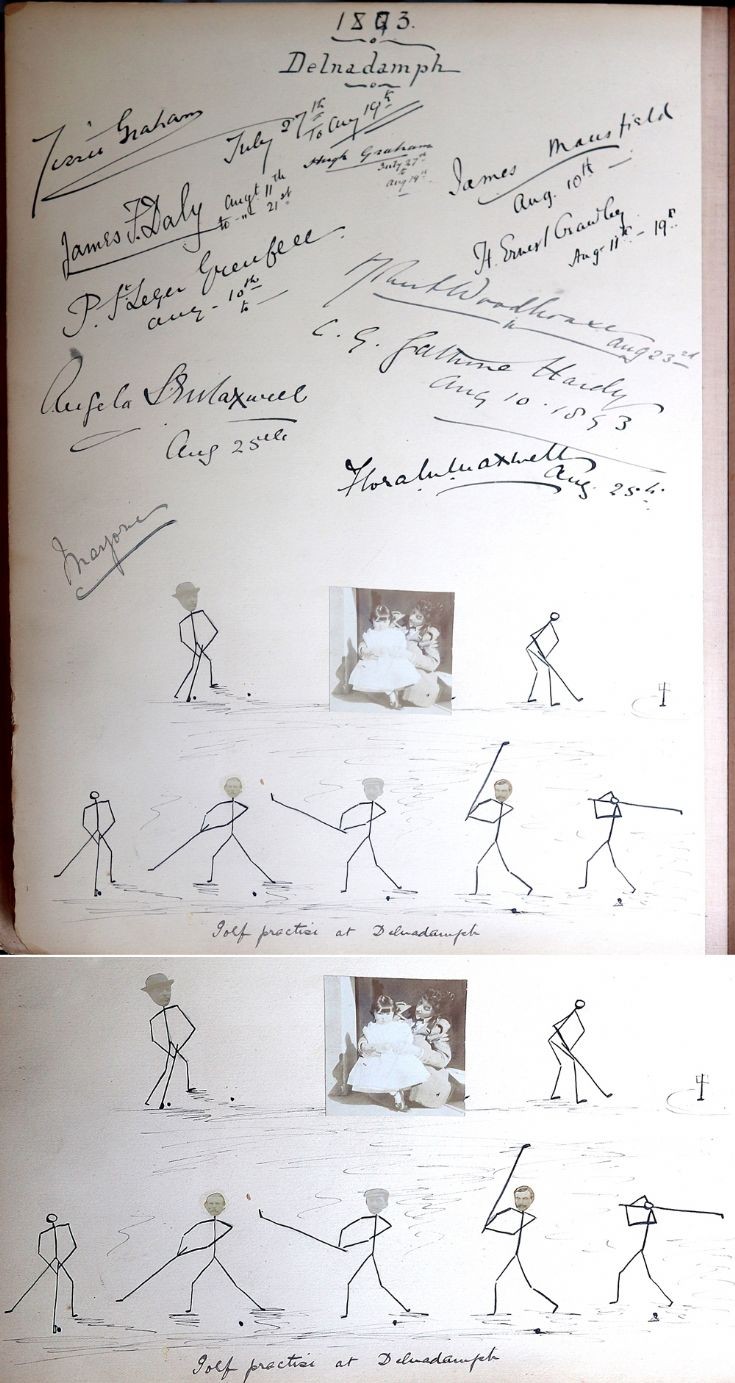 1893.
Delnadamph
Graham
July 27th
To Aug 19th
Hugh Graham
July 27th
to
Aug 19th
James Mansfield
Aug. 10th
James F. Daly
Augt 11th
to -"- 21st
H. Ernest Crawley
Aug 11th - 19th
P. St Leger Grenfell
Aug - 10th
to
Woodhouse
Aug 23rd
C. G. Gathorne Hardy
Aug 10. 1893
Angela Maxwell
Aug 25th
Flora M. Maxwell
Aug. 25th.
Marjorie
Golf practise at Delnadamph
Golf practise at Delnadamph